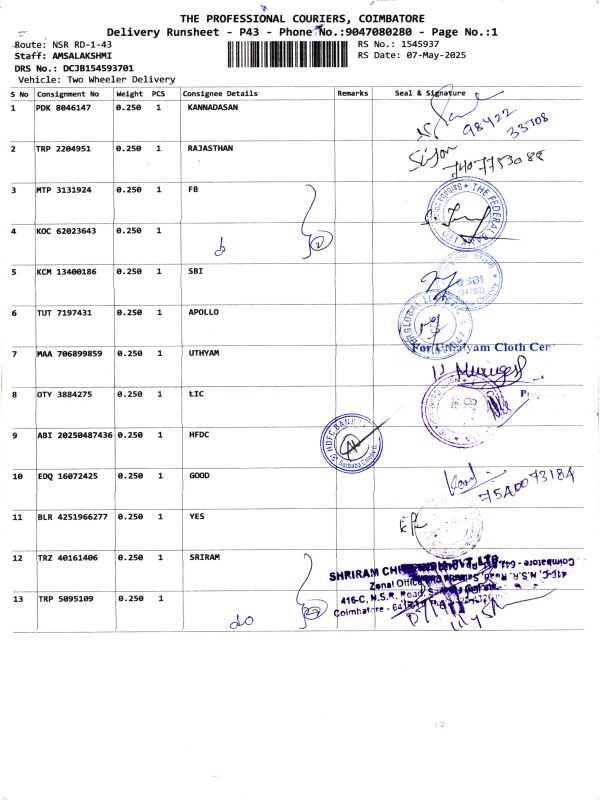 THE PROFESSIONAL COURIERS, COIMBATORE
Delivery Runsheet - P43 - Phone No.:9047080280 - Page No.:1
Route: NSR RD-1-43
RS No.: 1545937
Staff: AMSALAKSHMI
RS Date: 07-May-2025
DRS No.: DCJB154593701
Vehicle: Two Wheeler Delivery
S No Consignment No Weight PCS Consignee Details Remarks Seal & Signature
1 PDK 8046147 0.250 1 KANNADASAN
98422
33708
2 TRP 2204951 0.250 1 RAJASTHAN
7407753088
3 MTP 3131924 0.250 1 FB
THE FEDERAL BANK LTD
4 KOC 62023643 0.250 1
do (2)
5 KCM 13400186 0.250 1 SBI
SBI
6 TUT 7197431 0.250 1 APOLLO
7 MAA 706899859 0.250 1 UTHYAM
For Uthaiyam Cloth Cen
8 OTY 3884275 0.250 1 tIC
9 ABI 20250487436 0.250 1 HFDC
HDFC BANK
Saibaba Colony
10 EDQ 16072425 0.250 1 GOOD
11 BLR 4251966277 0.250 1 YES
12 TRZ 40161406 0.250 1 SRIRAM
SHRIRAM CHITS INDIA PVT. LTD
Zonal Office
416-C, N.S.R. Road,
Coimbatore - 641
13 TRP 5095109 0.250 1
do